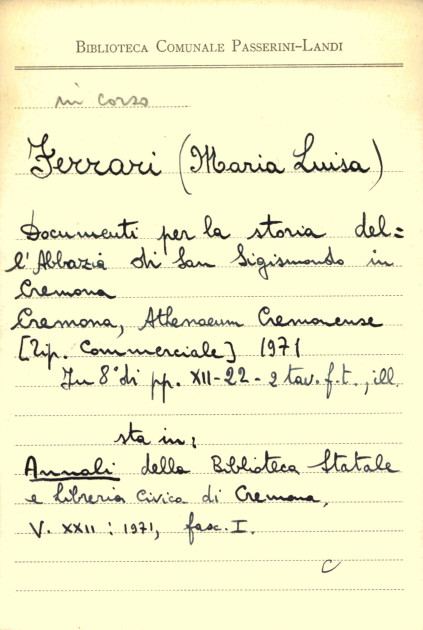 BIBLIOTECA COMUNALE PASSERINI-LANDI
in corso
Ferrari (Maria Luisa)
Documenti per la storia del=
l'Abbazia di San Sigismondo in
Cremona
Cremona, Athenaeum Cremonense
[Tip. Commerciale] 1971
In 8° di pp. XII-22-2 tav. f.t., ill.
sta in:
Annali della Biblioteca Statale
e Libreria Civica di Cremona,
V. XXII: 1971, fasc. I.
C